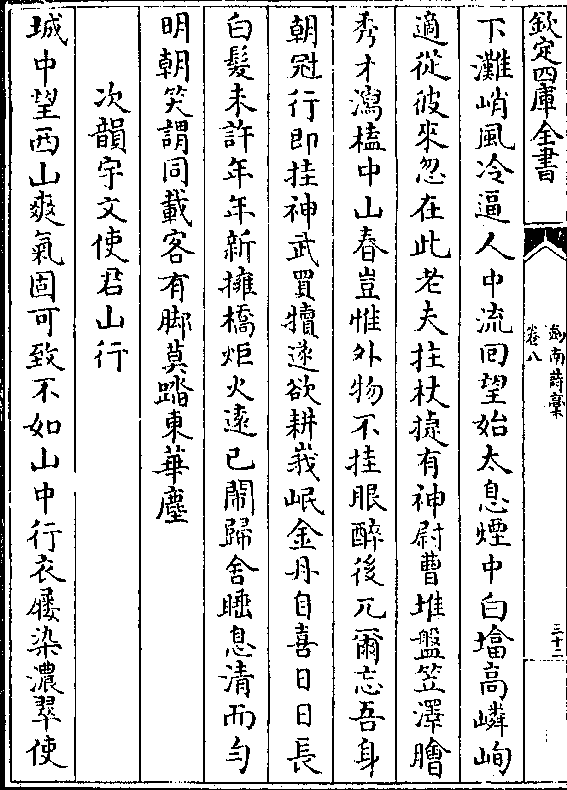 欽定四庫全書
劍南詩藳
卷八
三十二
下灘峭風冷逼人中流回望始太息煙中白墖高嶙峋
適從彼來忽在此老夫拄杖捷有神尉曹堆盤笠澤膾
秀才瀉榼中山春豈惟外物不挂眼醉後兀爾忘吾身
朝冠行即挂神武買犢遂欲耕峩岷金丹自喜日日長
白髮未許年年新擁橋炬火遠已鬧歸舍睡息清而勻
明朝笑謂同載客有脚莫踏東華塵
次韻宇文使君山行
城中望西山爽氣固可致不如山中行衣屨染濃翠使